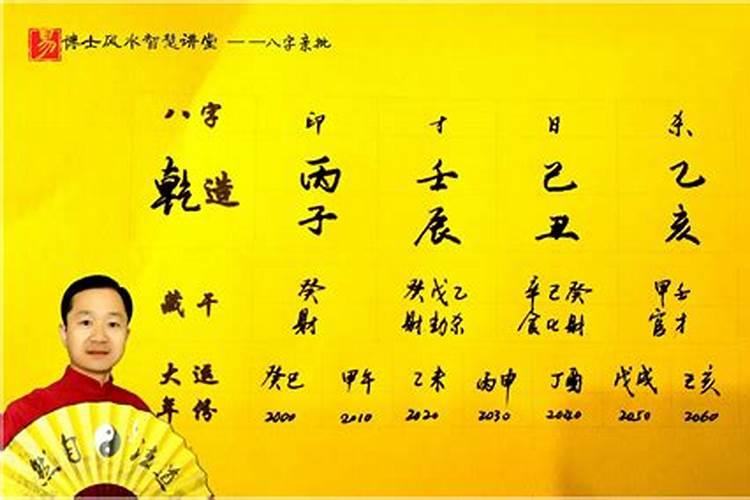 易 博士风水智慧讲堂 ——八字亲批
八字 印 才 日 杀
乾造 丙 壬 己 乙
子 辰 丑 亥
藏干 癸 癸戊乙 辛己癸 甲壬
財 財劫杀 食比財 官才
大运 癸巳 甲午 乙未 丙申 丁酉 戊戌 亥
年份 2000 2010 2020 2030 2040 2050 2060
然自法道